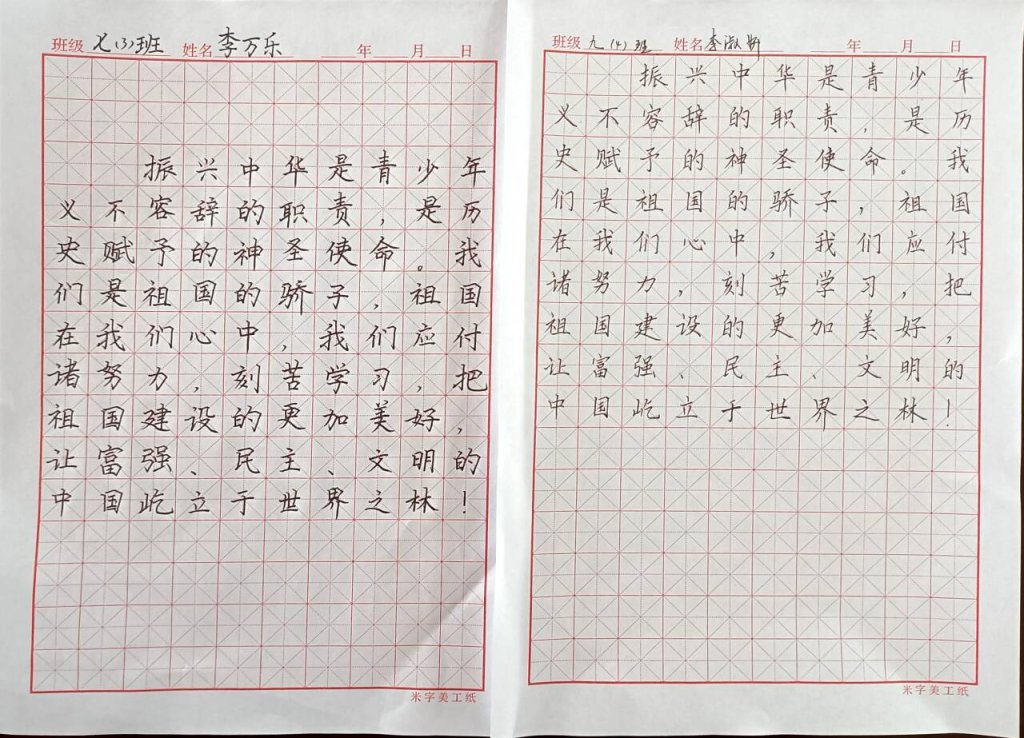 班级 七(3)班 姓名 李万乐 年 月 日
振兴中华是青少年
义不容辞的职责，是历
史赋予的神圣使命。我
们是祖国的骄子，祖国
在我们心中，我们应付
诸努力，刻苦学习，把
祖国建设的更加美好，
让富强、民主、文明的
中国屹立于世界之林！
米字美工纸
班级 九(4)班 姓名 李淑 年 月 日
振兴中华是青少年
义不容辞的职责，是历
史赋予的神圣使命。我
们是祖国的骄子，祖国
在我们心中，我们应付
诸努力，刻苦学习，把
祖国建设的更加美好，
让富强、民主、文明的
中国屹立于世界之林！
米字美工纸